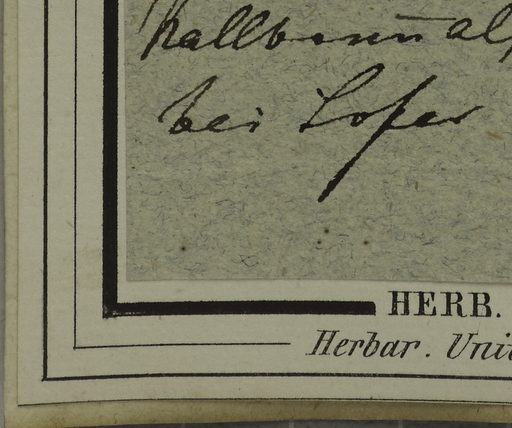 Kallbrunnalp
bei Lofer
HERB.
Herbar. Univ